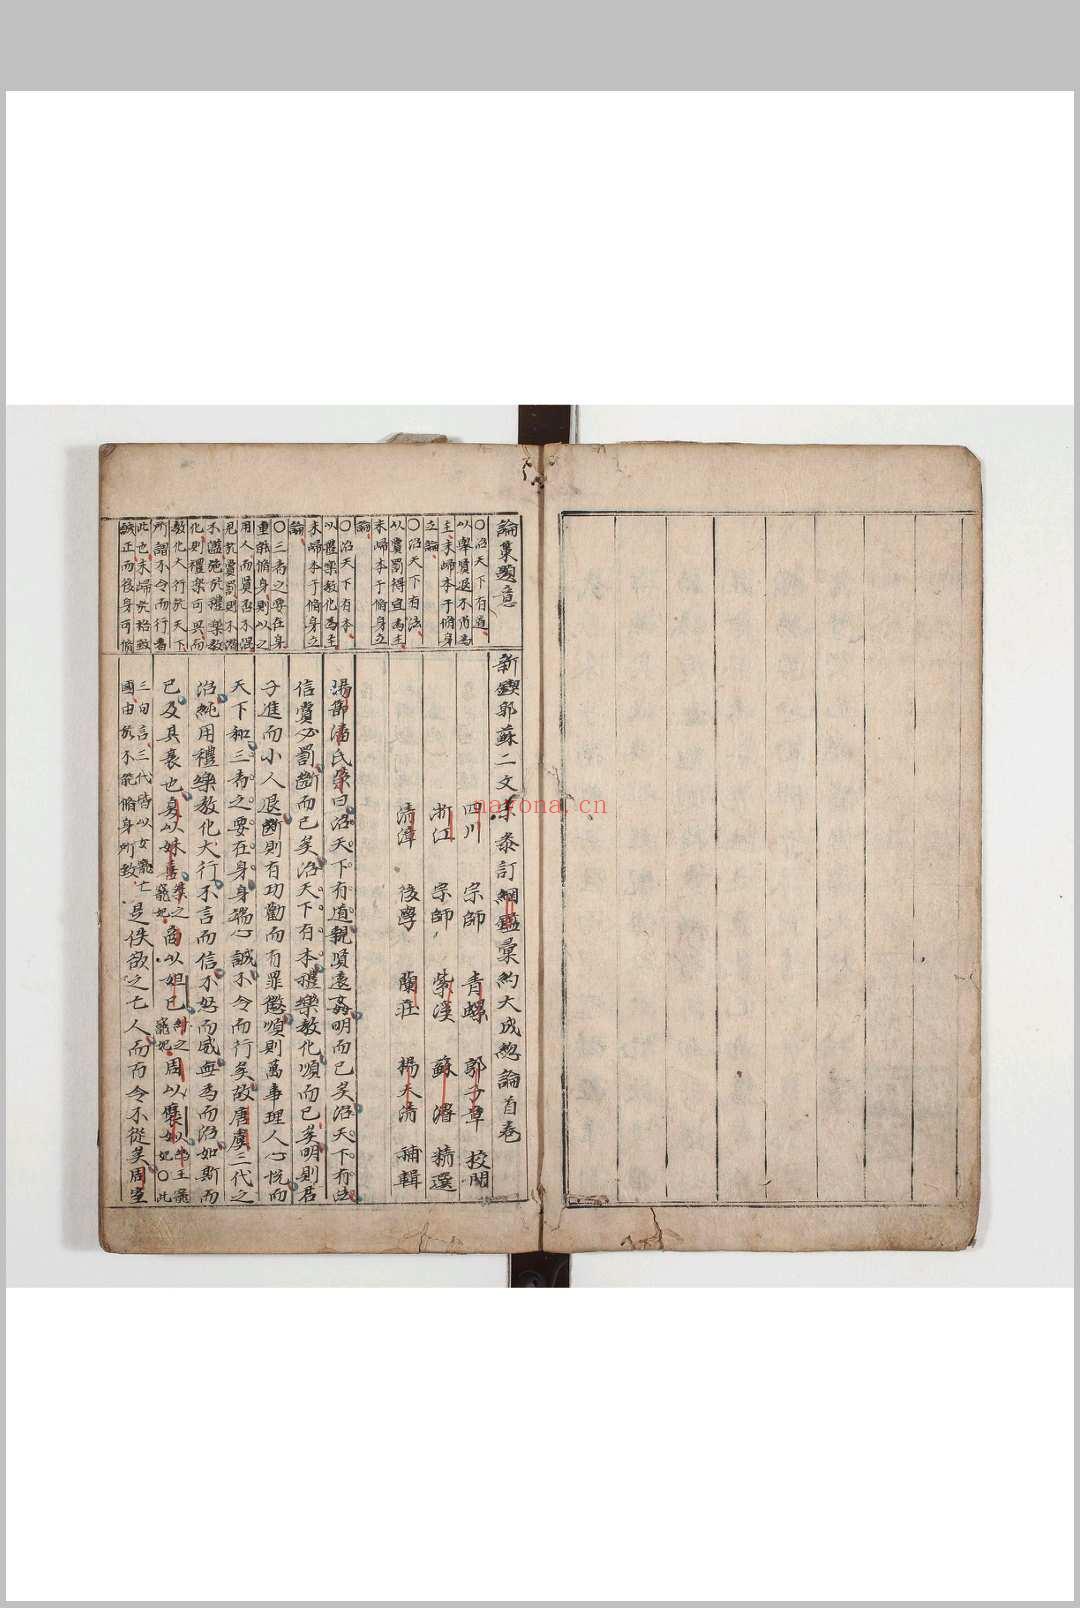 論東題意
〇治天下有道
以舉賢退不肖為
主末歸本于脩身
立論
〇治天下有法
以賞罰得宜為主
末歸本于脩身立
論
〇治天下有本
以禮樂教化為主
末歸本于脩身立
論
〇三者之要在身
重能脩身則以之
用人而賢否不混
見於賞罰則不濫
不濫施於禮樂教
化則禮樂可興而
教化大行於天下
所謂不令而行者
此也末歸於格致
誠正而後身可脩
新鍥郭蘇二文宗泰訂綱鑑彙約大成總論首卷
四川 宗師 青螺 郭子章 校閱
浙江 宗師 紫溪 蘇濬 精選
清漳 後學 蘭莊 楊天清 補輯
陽節潘氏榮曰治天下有道親賢遠姦明而已矣治天下有法
信賞必罰斷而已矣治天下有本禮樂教化順而已矣明則君
子進而小人退斷則有功勸而有罪懲順則萬事理人心悅而
天下和三者之要在身身端心誠不令而行矣故唐虞三代之
治純用禮樂教化大行不言而信不怒而威無為而治如斯而
已及其衰也夏以妹喜桀之寵妃商以妲己紂之寵妃周以褒姒幽王寵妃〇此
三句言三代皆以女寵亡國由於不能脩身所致是佚欲之七人而而令不從矣周室
nayona.cn